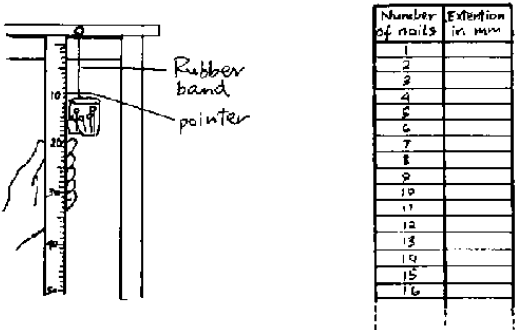 Rubber
band
pointer
10
20
30
40
50
Number of nails | Extention in mm
1
2
3
4
5
6
7
8
9
10
11
12
13
14
15
16